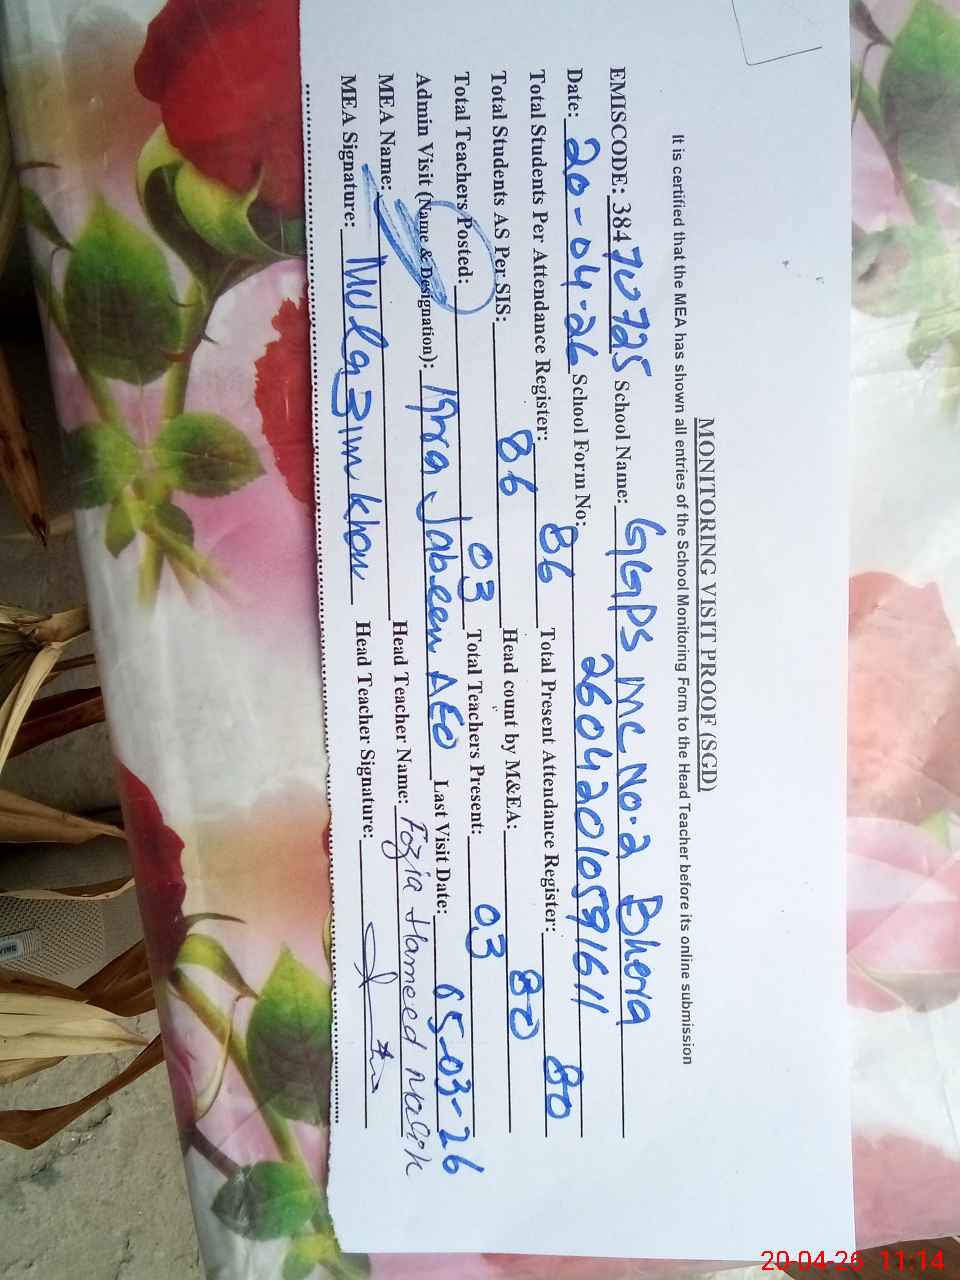 MONITORING VISIT PROOF (SGD)
It is certified that the MEA has shown all entries of the School Monitoring Form to the Head Teacher before its online submission
EMISCODE: 38470725 School Name: GGPS MC No.2 Bhera
Date: 20-04-26 School Form No: 26042010591611
Total Students Per Attendance Register: 86 Total Present Attendance Register: 80
Total Students AS Per SIS: 86 Head count by M&EA: 80
Total Teachers Posted: 03 Total Teachers Present: 03
Admin Visit (Name & Designation): Iqra Jabeen AEO Last Visit Date: 05-03-26
MEA Name: Head Teacher Name: Fozia Hameed Masih
MEA Signature: Mulazim khan Head Teacher Signature:
20-04-26 11:14